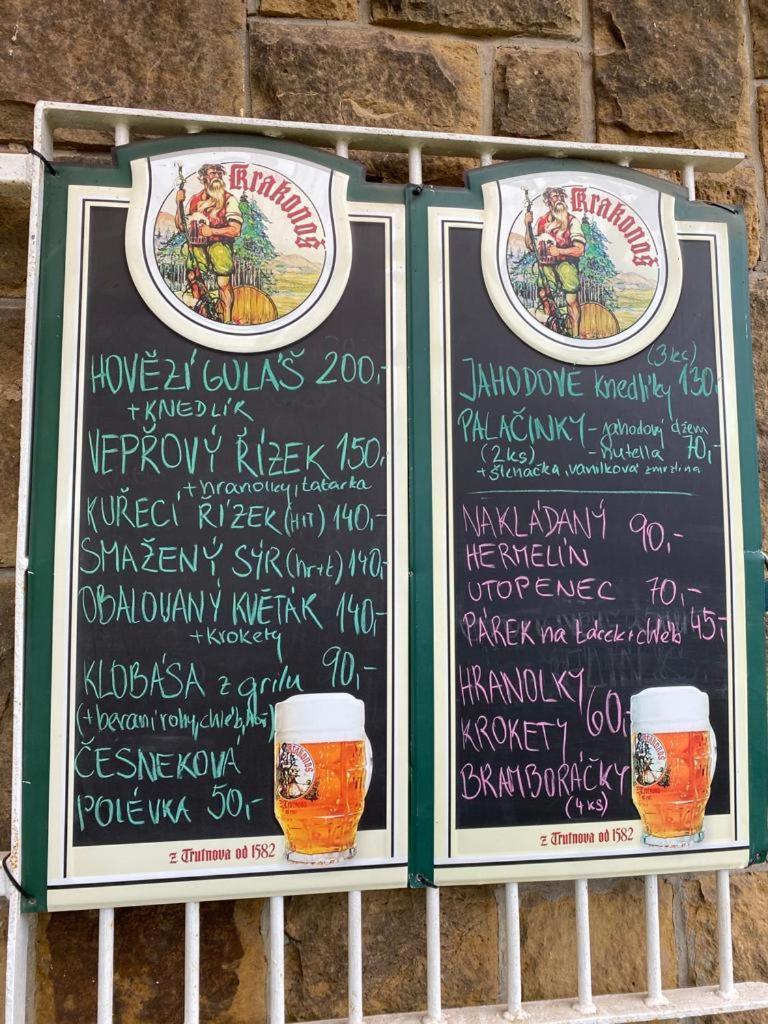 Krakonoš
HOVĚZÍ GULÁŠ 200,-
+ KNEDLÍK
VEPŘOVÝ ŘÍZEK 150,-
+ hranolky, tatarka
KUŘECÍ ŘÍZEK (H+T) 140,-
SMAŽENÝ SÝR (hr+t) 140,-
OBALOVANÝ KVĚTÁK 140,-
+ krokety
KLOBÁSA z grilu 90,-
(+ beraní rohy, chléb,
ČESNEKOVÁ
POLÉVKA 50,-
Krakonoš
z Trutnova od 1582
Krakonoš
(3 ks)
JAHODOVÉ knedlíky 130,-
PALAČINKY - jahodový džem
(2 ks) - nutella 70,-
+ šlehačka, vanilková zmrzlina
NAKLÁDANÝ 90,-
HERMELÍN
UTOPENEC 70,-
PÁREK na tácek + chléb 45,-
HRANOLKY
KROKETY 60,-
BRAMBORÁČKY
(4 ks)
Krakonoš
z Trutnova od 1582